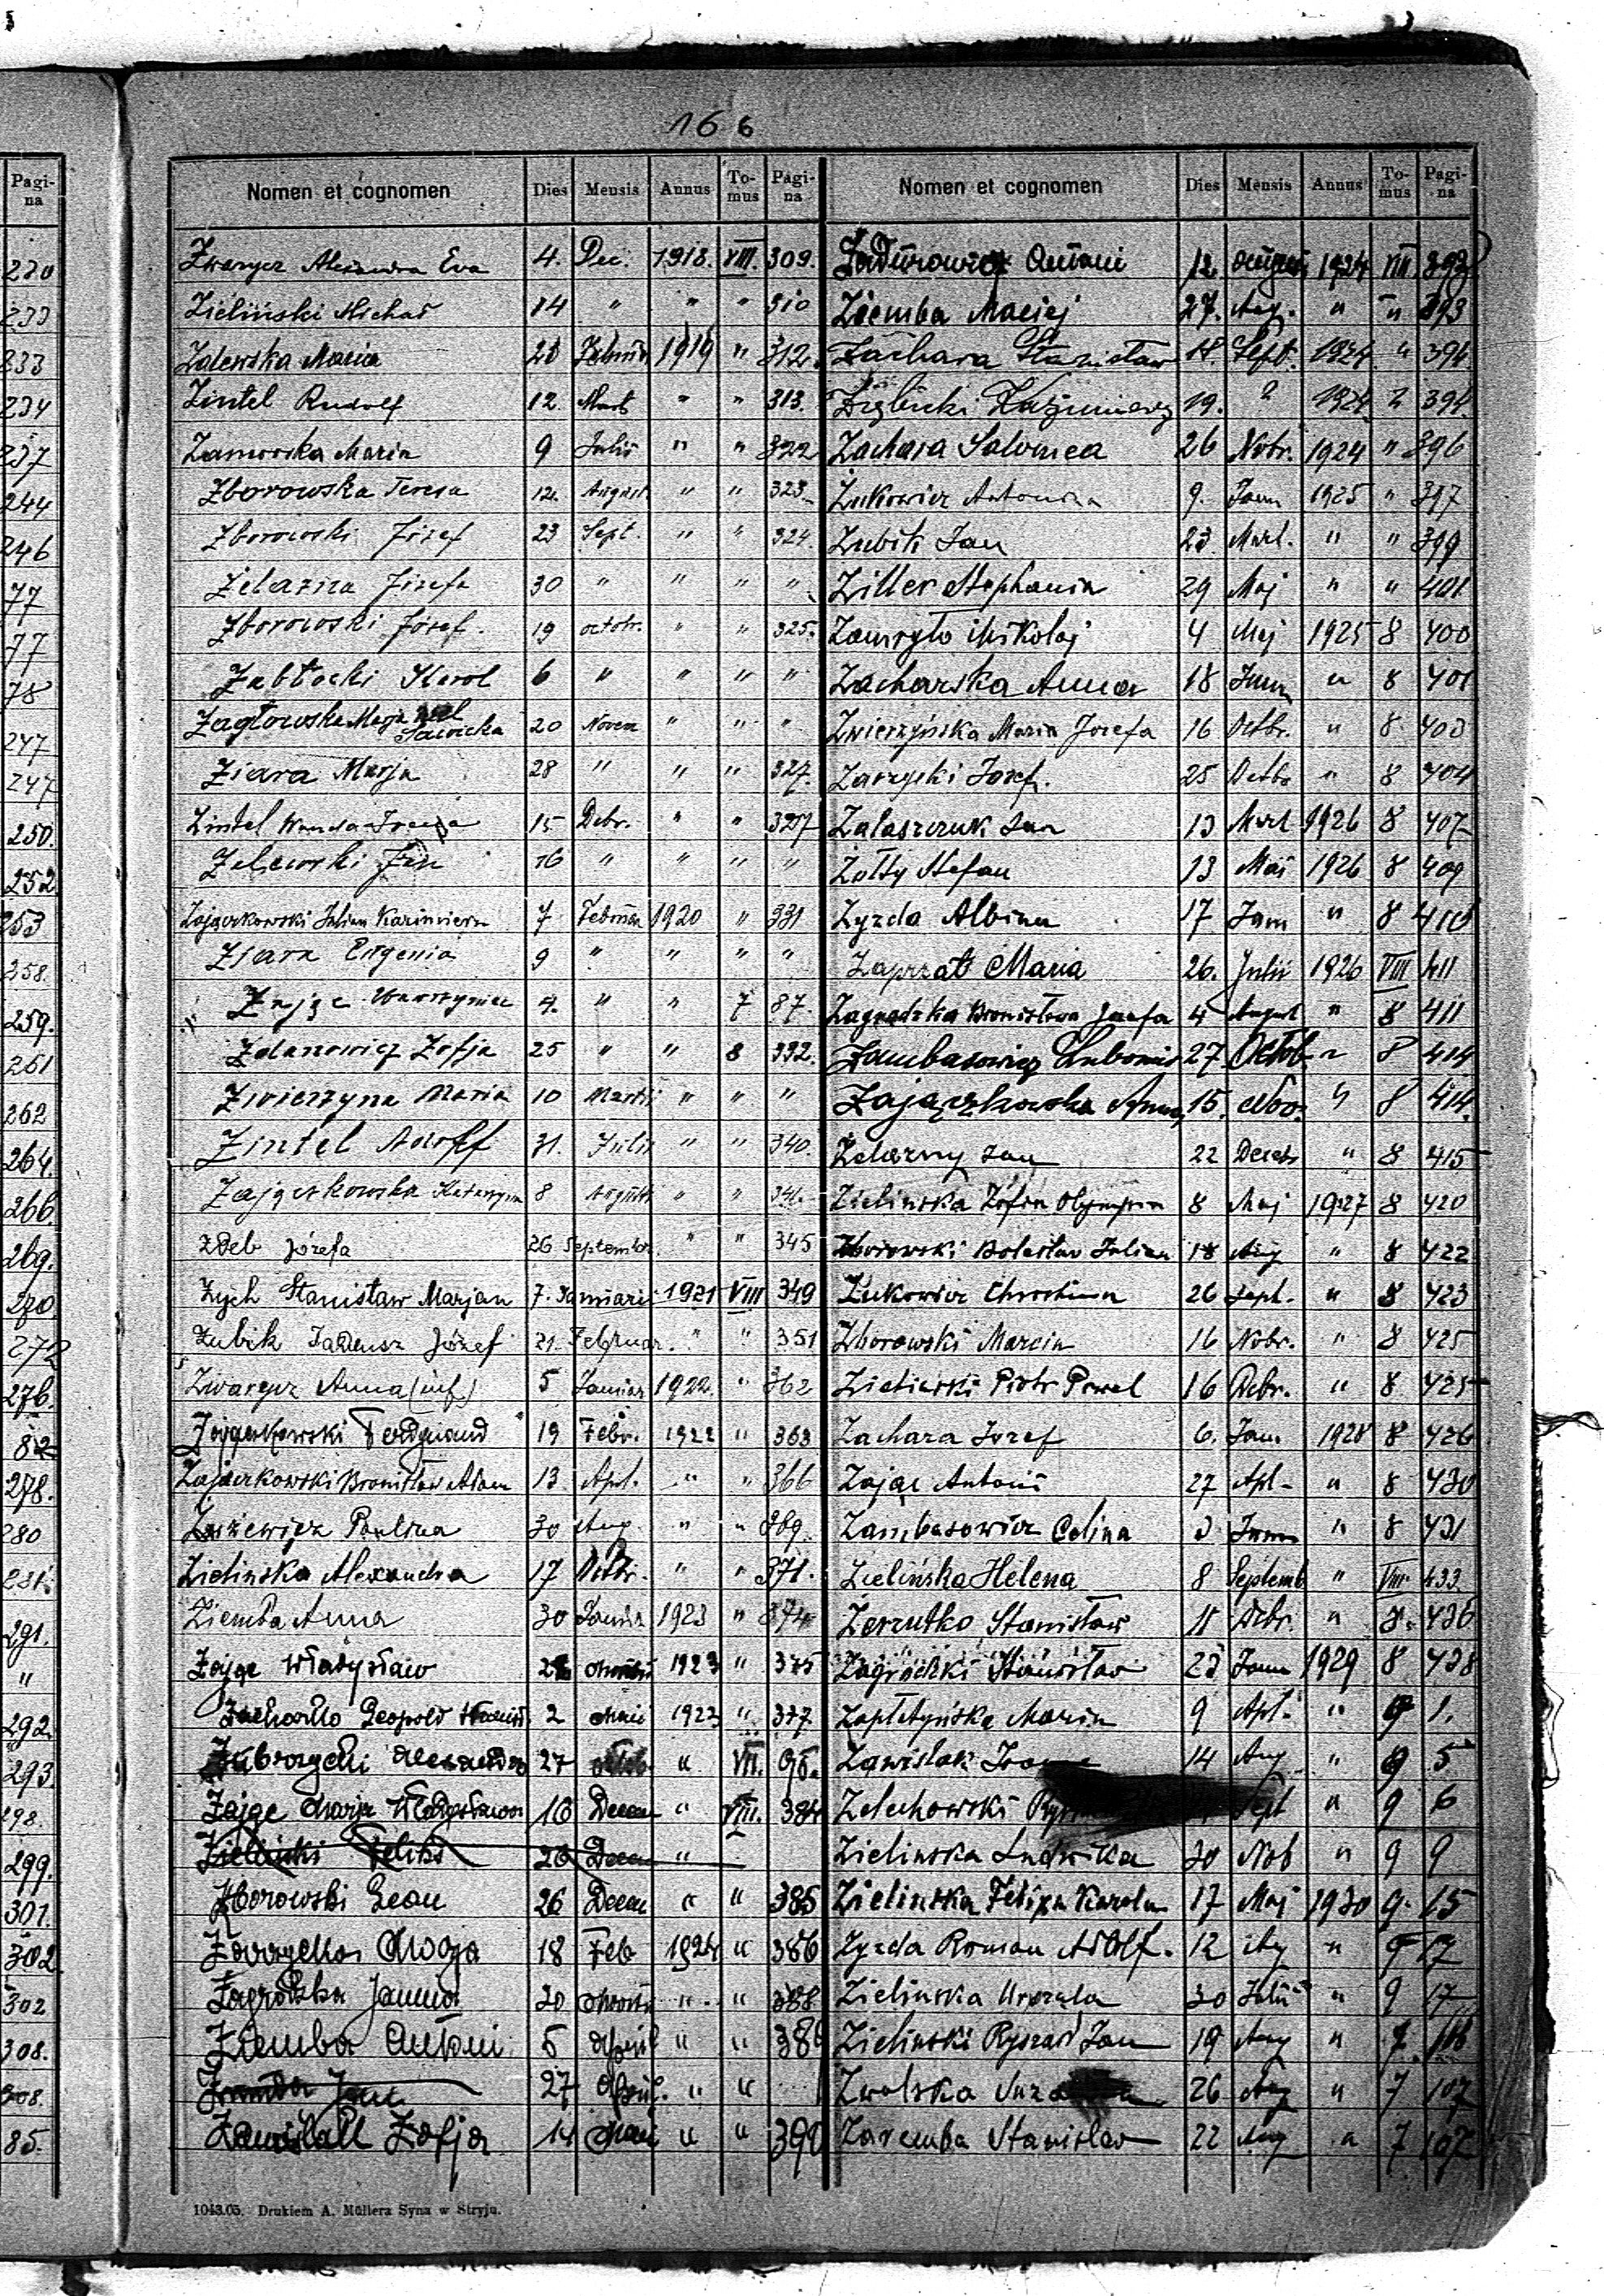 166
Pagina
Nomen et cognomen Dies Mensis Annus Tomus Pagina Nomen et cognomen Dies Mensis Annus Tomus Pagina
230
233
233
234
237
244
246
77
77
78
247
247
250.
252
253
258.
259.
261
262
264.
266.
269.
270
272
276.
82
278.
280
281.
291.
"
292.
293
298.
299.
301.
302
302
308.
308.
85.
Zwarycz Eva 4. Dec. 1918. VIII. 309.
Zieliński Michał 14 " " " 310
Zalewska Maria 1919 " 312.
Zintel Rudolf 12. Mart " " 313.
Zamorska Maria 9 Julii " " 322
Zborowska Teresa 12. August " " 323.
Zborowski Józef 23 Sept. " " 324.
Żelazna Józefa 30 " " " "
Zborowski Józef. 19 octobr. " " 325.
Zabłocki Karol 6 " " " "
Zagłowska Marja Sawicka 20 Novem " " "
Ziara Marja 28 " " " 327.
Zintel Wanda 15 Debr. " " 327
16 " " " "
Zajączkowski Julian Kazimierz 7 Februar 1920 " 331
Ziara Eugenia 9 " " " "
Zając Wawrzyniec 4. " " 7 87.
Zdanowicz Zofja 25 " " 8 332.
Zwierzyna Maria 10 Martii " " "
Zintel Adolf 31. Julii " " 340.
Zajączkowska Katarzyna 8 Augusti " " 341.
Zdeb Józefa 26 Septembr. " " 345
Zych Stanisław Marjan 7. Januarii 1921 VIII 349
Zubik Tadeusz Józef 21. Februar. " " 351
Zwarycz Anna (inf) 5 Januar 1922. " 362
Zajączkowski Ferdynand 19 Febr. 1922 " 363
Zajączkowski Bronisław Adam 13. Apl. " " 366
Paulina 30 Aug. " " 369.
Zielinska Alexandra 17 Octbr. " " 371.
Ziemba Anna 30 Januar 1923 " 374
Zając Władysław 1923 " 375
Leopold 2 Maii 1923 " 377
27 " VII. 95.
Zając Marja Władysława 16 Decem " VIII. 384
Zieliński Feliks 26 Decem "
Zborowski Leon 26 Decem " " 385
18 Feb 1924 " 386
Zagrodzka Janina 30 " " 388
Ziemba Antoni 5 April " " 38
27 April. " "
Zofja 14 Maii " " 390
Antoni 12. August 1924 VIII 392
Ziemba Maciej 27. Aug. " " 393
Zachara Stanisław 18. Sept. 1924. " 394.
Kazimierz 19. " 1924 " 394.
Zachara Salomea 26 Nobr. 1924 " 396
Żukowicz Antonina 9. Janu 1925 " 397
Zubik Jan 23 Mart. " " 399
Ziller Stephania 29 Maj " " 401
Mikołaj 4 Maj 1925 8 400
Zacharska Anna 18 Juni " 8 401
Zwierzyńska Maria Józefa 16 Octbr. " 8 403
Zarzycki Jozef. 25 Octbr " 8 404
Zalaszczuk Jan 13 Mart 1926 8 407
Żółty Stefan 13 Maii 1926 8 409
Zyzda Albina 17 " 8 410
Zaprzał Maria 26. Julii 1926 VIII 411
Zagradzka Bronisława Józefa 4 August " 8 411
Zambasowicz Lubomir 27. Octob. " 8 414
Zajączkowska Anna 15. Nbo. " 8 414.
Żelazny Jan 22 Decebr " 8 415
Zielinska Zofia Olympia 8 Maj 1927 8 420
Zborowski Bolesław Julian 18 Aug " 8 422
Żukowicz 26 Sept. " 8 423
Zborowski Marcin 16 Nobr. " 8 425
Piotr Paweł 16 Debr. " 8 425
Zachara Józef 6. Jan. 1928 8 426
Zając Antoni 27 Apl " 8 430
Zambasowicz Celina 3 " 8 431
Zielińska Helena 8 Septemb " VIII. 433.
Stanisław 11 Debr. " 8. 436
Zagrodzki Stanisław 23 Janu 1929 8 438
Maria 9 Apl. " 9 1.
Zawiślak 14 Aug " 9 5
Żelechowski Sept " 9 6
Zielinska Ludwika 30 Nob " 9 9
Zielinska Felixa Karola 17 Maj 1930 9. 15
Zyzda Roman Adolf. 12 " 9 17
Zielinska Urszula 30 Julii " 9 17
Zielinski Ryszard Jan 19 Aug "
Zwolska 26 Aug " 7 107
Zaremba Stanislaw 22 Aug " 7 107
1043.05. Drukiem A. Müllera Syna w Stryju.